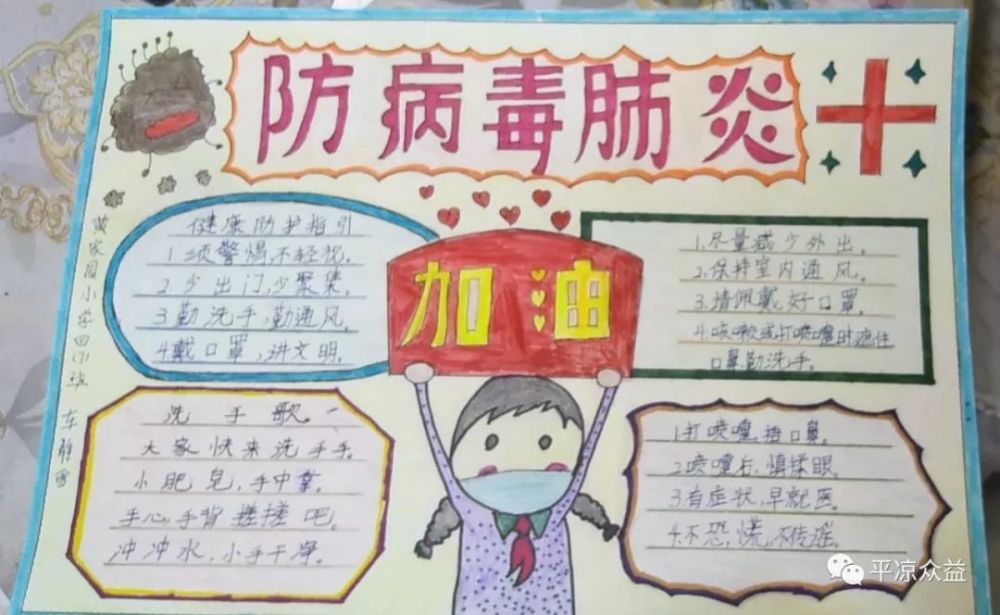 防病毒肺炎
健康防护指引
1.须警惕,不轻视。
2.少出门,少聚集。
3.勤洗手,勤通风。
4.戴口罩,讲文明。
加油
1.尽量减少外出。
2.保持室内通风。
3.请佩戴好口罩。
4.咳嗽或打喷嚏时遮住
口鼻勤洗手。
洗手歌。
大家快来洗手手。
小肥皂,手中拿。
手心,手背搓搓吧。
冲冲水,小手干净。
1.打喷嚏,捂口鼻。
2.喷嚏后,慎揉眼。
3.有症状,早就医。
4.不恐慌,不传谣。
黄家园小学四(1)班
平凉众益